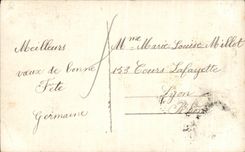 Meilleurs
vœux de bonne
Fête
Germaine
Mme Marie Louise Millot
153 Cours Lafayette
Lyon
Rhône